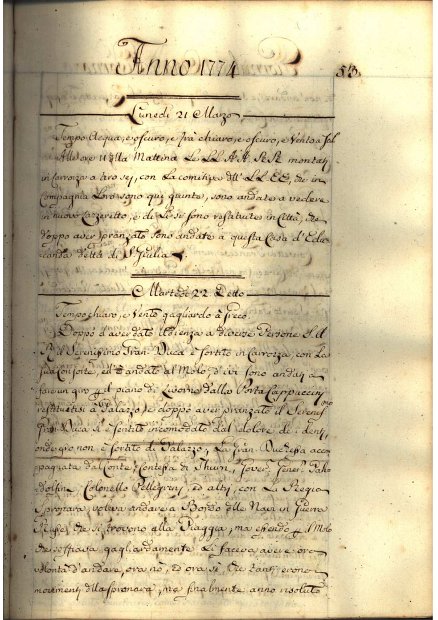 Anno 1774
513.
Lunedì 21 Marzo
Tempo Acqua, e oscuro, e frà chiaro, e oscuro, e Vento a
All'ore 11 della Matteina Le LL. AA. montati
in Carrozza a tiro sei, con La comitiva dell' LL. EE, che in
Compagnia Loro sono qui giunte, sono andate a vedere
il nuovo Lazzeretto, e di Lì si sono restituite in Città, e
doppo aver pranzato sono andate a questa Casa d'Edu-
canda detta di S. Giulia
Martedì 22 Detto
Tempo chiaro, e Vento gagliardo à Greco.
Doppo d'aver dato Udienza a diverse Persone
Serenissimo Gran Duca è sortito in Carrozza, con La
sua Consorte, ed è andato al Molo, d'ivi sono andati a
fare un giro il piano di Livorno dalla Porta Cappuccini
restituitisi à Palazzo, e doppo aver pranzato il Serenissimo
Gran Duca si è sentito incomodato dal dolore de i denti,
onde non è sortito di Palazzo, La Gran Duchessa acco-
pagnata dal Conte, e Contessa di Thurn,
Colonello Pellegrini, ed altri, con La Regia
Speronara, voleva andare a Bordo delle Navi in Guerra
che si trovono alla Piaggia, ma essendo il Molo
gagliardamente Li faceva avere ora
Volontà d'andare, ora nò, ed ora sì, che tanti erono i
movimenti della Speronara, ma finalmente anno risoluto